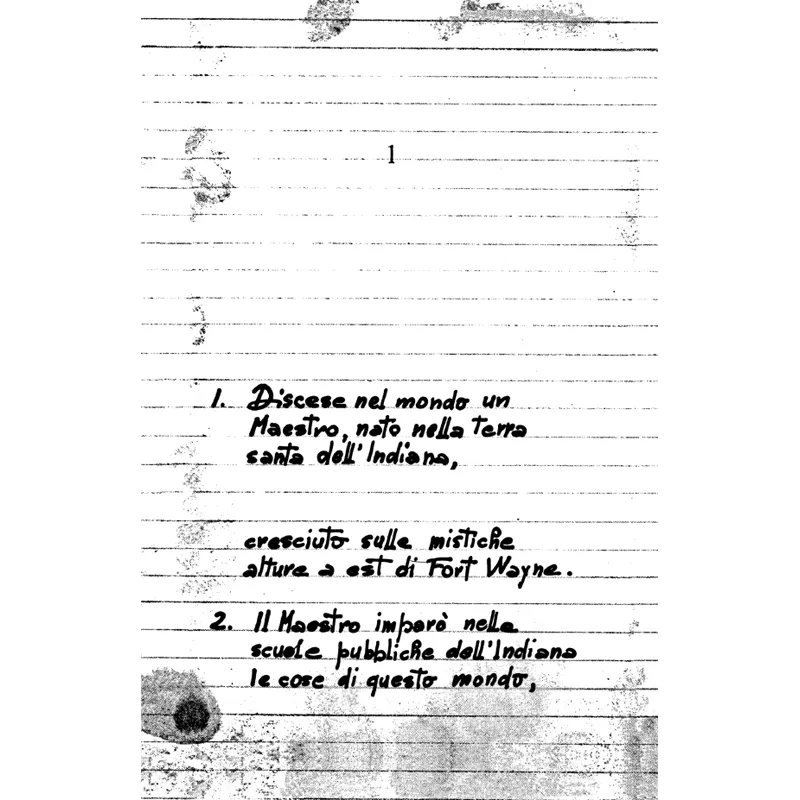 1
1. Discese nel mondo un
Maestro, nato nella terra
santa dell'Indiana,
cresciuto sulle mistiche
alture a est di Fort Wayne.
2. Il Maestro imparò nelle
scuole pubbliche dell'Indiana
le cose di questo mondo,